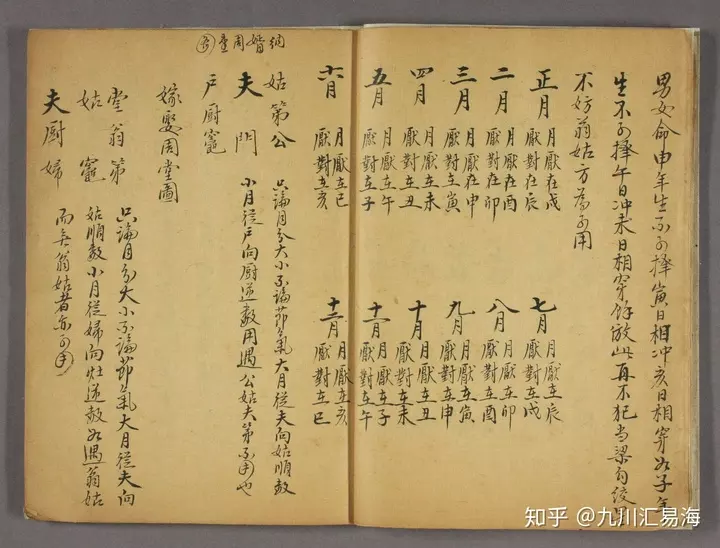 男女命申年生不可擇寅日相冲亥日相穿如子年
生不可擇午日冲未日相穿餘放此再不犯当梁勾絞
不妨翁姑方為可用
正月 月厭在戌
厭對在辰
二月 月厭在酉
厭對在卯
三月 月厭在申
厭對在寅
四月 月厭在未
厭對在丑
五月 月厭在午
厭對在子
六月 月厭在巳
厭對在亥
七月 月厭在辰
厭對在戌
八月 月厭在卯
厭對在酉
九月 月厭在寅
厭對在申
十月 月厭在丑
厭對在未
十一月 月厭在子
厭對在午
十二月 月厭在亥
厭對在巳
納婚周堂
姑第公
夫門
戶厨竈
只論月分大小不論節氣大月從夫向姑順数
小月從戶向厨逆数用遇公姑夫第不用也
嫁娶周堂圖
堂翁第
姑竈
夫厨婦
只論月分大小不論節氣大月從夫向
姑順数小月從婦向灶逆数如遇翁姑
而無翁姑者亦可用
知乎 @九川汇易海